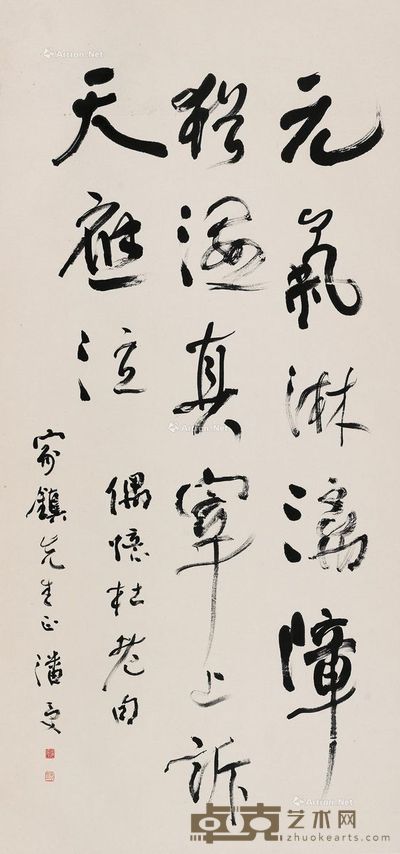 元氣淋漓障
猶濕真宰上訴
天應泣
偶憶杜老句
家鎮先生正 潘受
Artron.Net
Artron.Net
Artron.Net
Artron.Net
卓克艺术网
zhuokearts.com